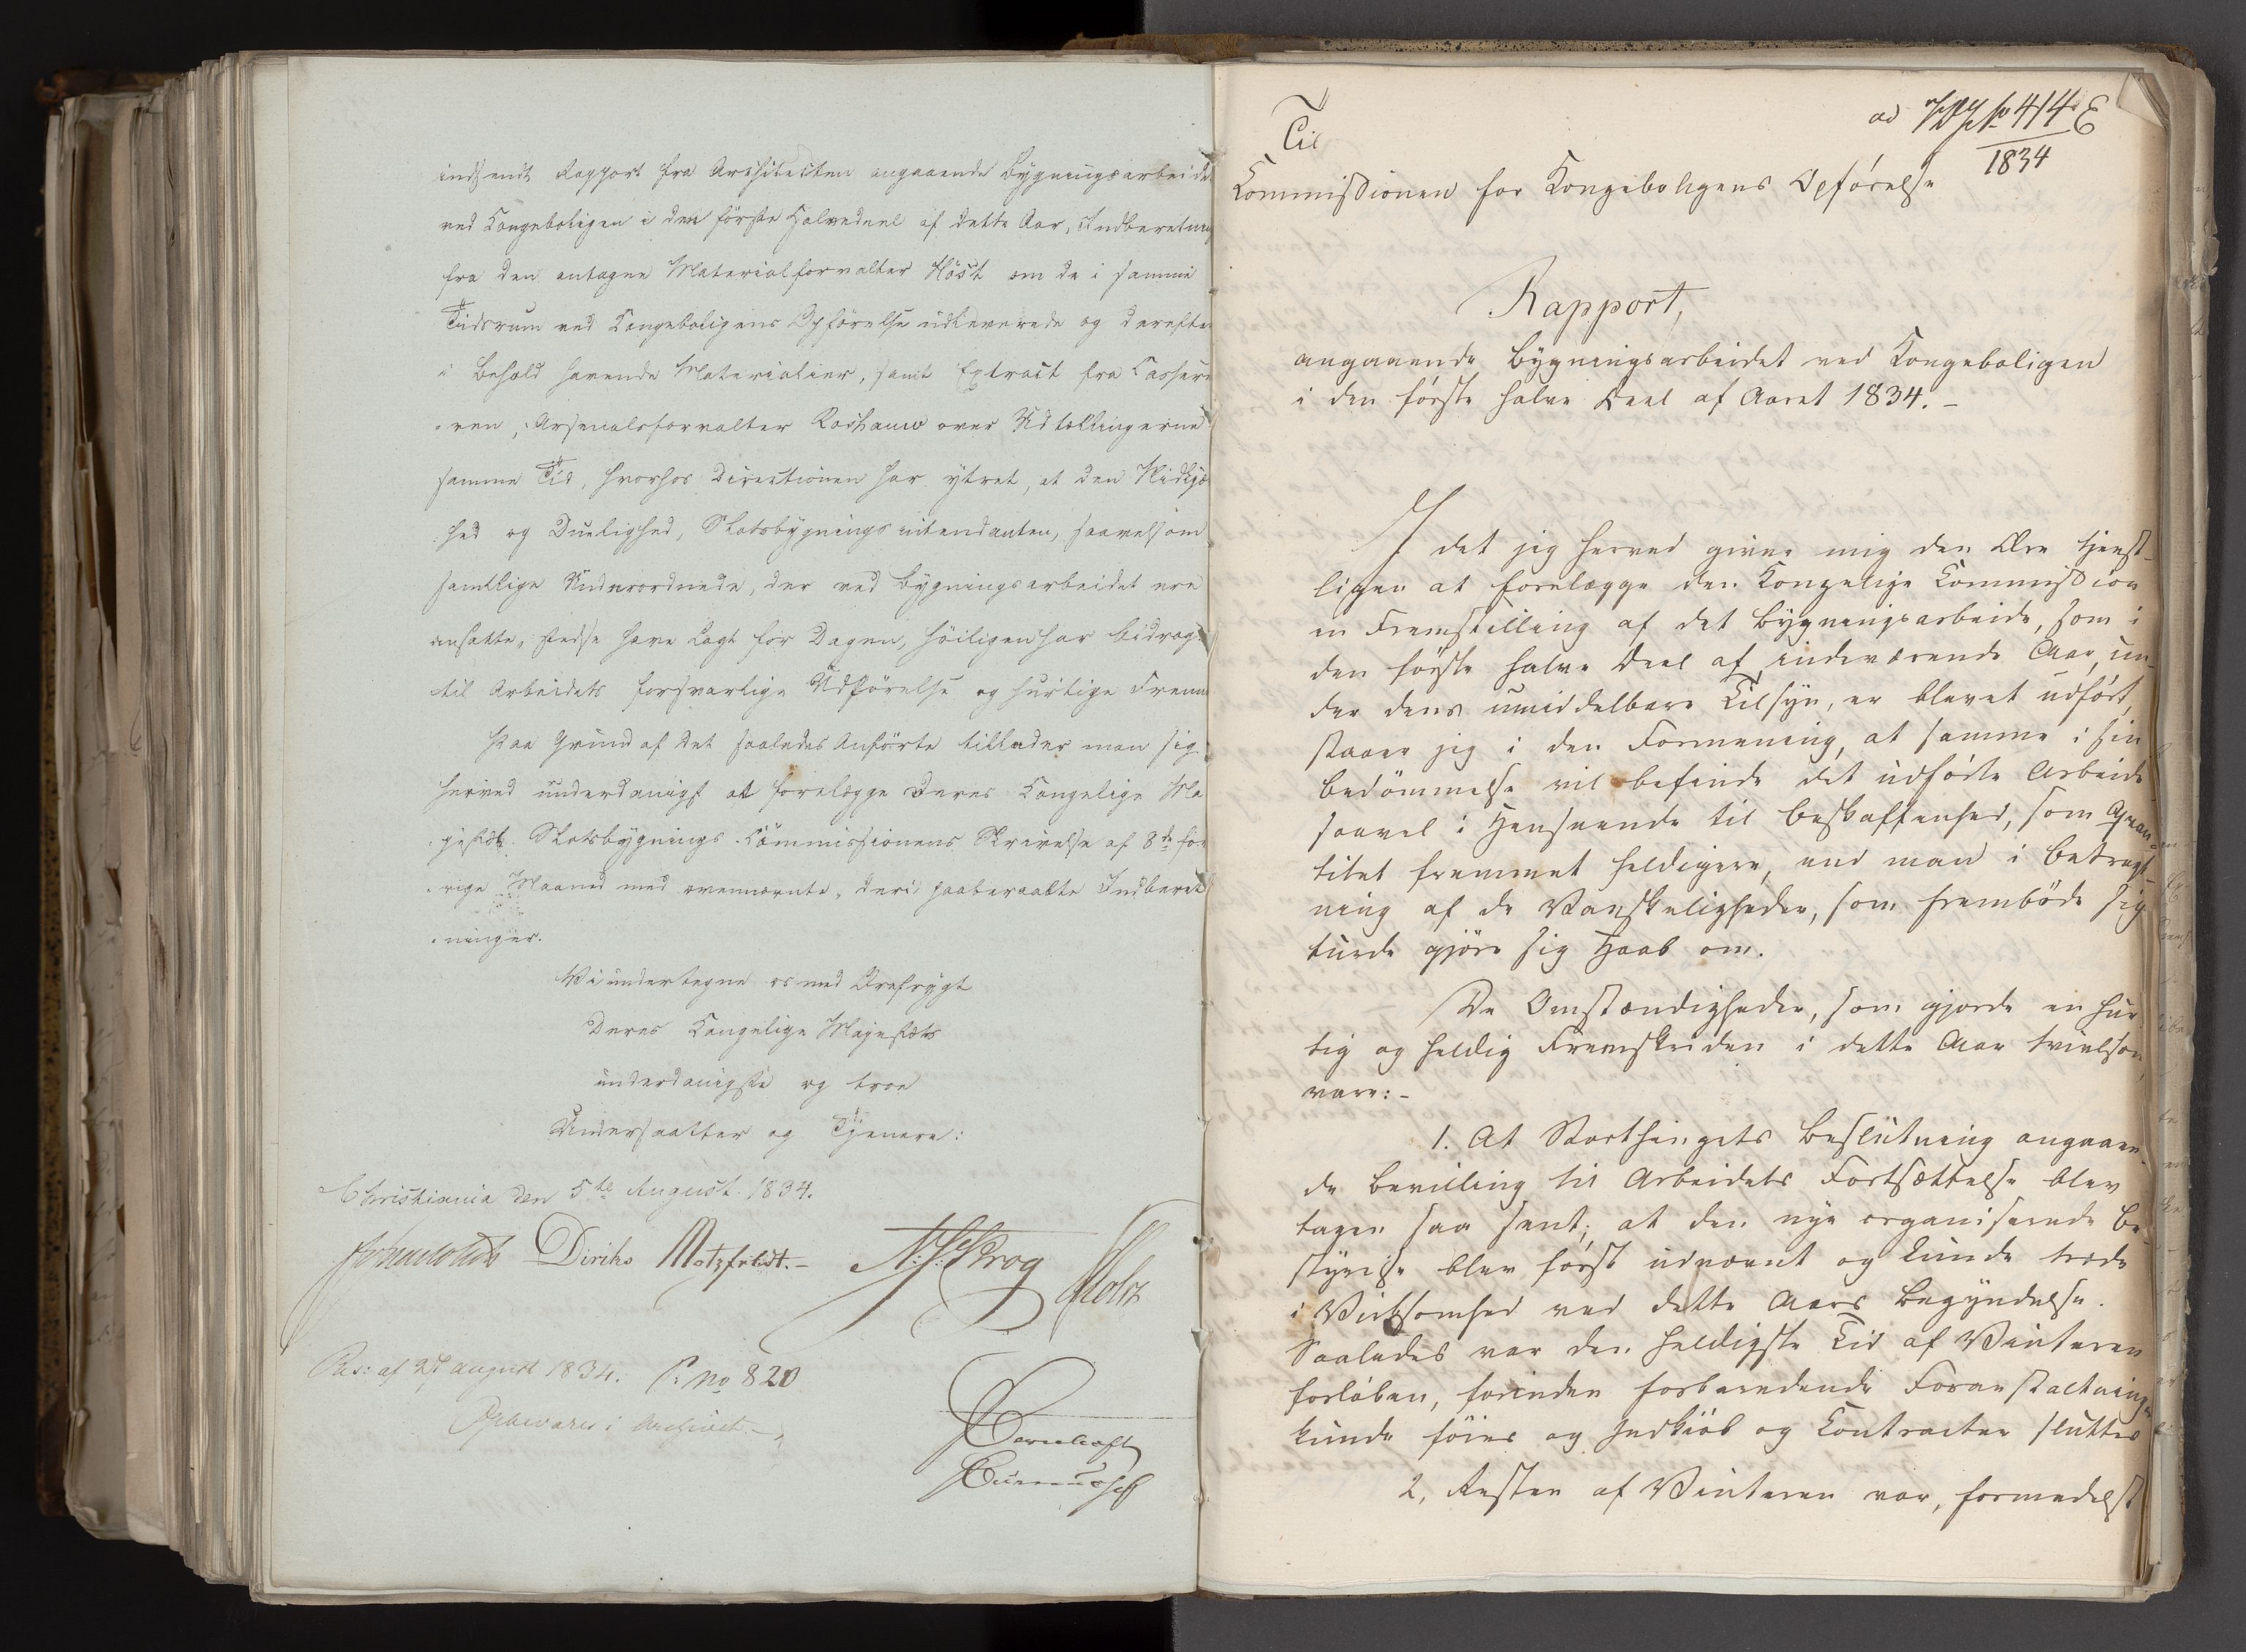 indsendt Rapport fra Architecten angaaende Bygningsarbeidet
ved Kongeboligen i den förste Halvedeel af dette Aar, Indberetning
fra den antagne Materialforvalter Höst om de i samme
Tidsrum ved Kongeboligens Opförelse udleverede og derefter
i Behold havende Materialier, samt Extract fra Cassere-
ren, Arsenalsforvalter Rashauw over Udtællingerne
samme Tid, hvorhos Directionen har ytret, at den Nidkjær-
hed og Duelighed, Slotsbygningsintendanten, saavelsom
samtlige Underordnede, der ved Bygningsarbeidet ere
ansatte, stedse have lagt for Dagen, höiligen har bidraget
til Arbeidets forsvarlige Udförelse og hurtige Fremme
Paa Grund af det saaledes Anförte tillader man sig
herved underdanigst at forelægge Deres Kongelige Ma-
jestæt Slotsbygnings-Commissionens Skrivelse af 8de for-
rige Maaned med ovennævnte, deri paaberaabte Indberet-
ninger.
Vi undertegne os med Ærefrygt
Deres Kongelige Majestæts
underdanigste og troe
Undersaatter og Tjenere:
Christiania den 5te August 1834.
Diriks Motzfeldt.- Krog Holst
Res: af 27 August 1834. P: No 820
Opbevares i Archivet.-
ad No 414 E
1834
Til
Kommissionen for Kongeboligens Opförelse
Rapport,
angaaende Bygningsarbeidet ved Kongeboligen
i den förste halve Deel af Aaret 1834.-
I det jeg herved giver mig den Ære tjenst-
ligen at forelægge den Kongelige Commission
en Fremstilling af det Bygningsarbeide, som i
den förste halve Deel af indeværende Aar, un-
der dens umiddelbare Tilsyn, er blevet udfört,
staaer jeg i den Formening, at samme i sin
Bedömmelse vil befinde det udförte Arbeide
saavel i Henseende til Beskaffenhed, som Qvan-
titet fremmet heldigere, end man i Betragt-
ning af de Vanskeligheder, som frembøde sig
turde gjöre sig Haab om.
De Omstændigheder, som gjorde en hur-
tig og heldig Fremskriden i dette Aar tvivlsom,
vare:-
1. At Storthingets Beslutning angaaen-
de Bevilling til Arbeidets Fortsættelse blev
tagen saa seent, at den nye organiserede Be-
styrelse blev först udnævnt og kunde træde
i Virksomhed ved dette Aars Begyndelse.
Saaledes var den heldigste Tid af Vinteren
forlöben, forinden forberedende Foranstaltninger
kunde föies og Indkiöb og Contracter sluttes
2, Resten af Vinteren var, formedelst